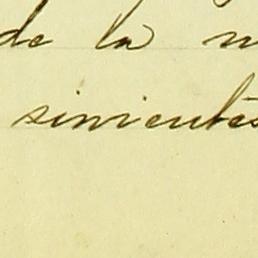 de la
sinientes